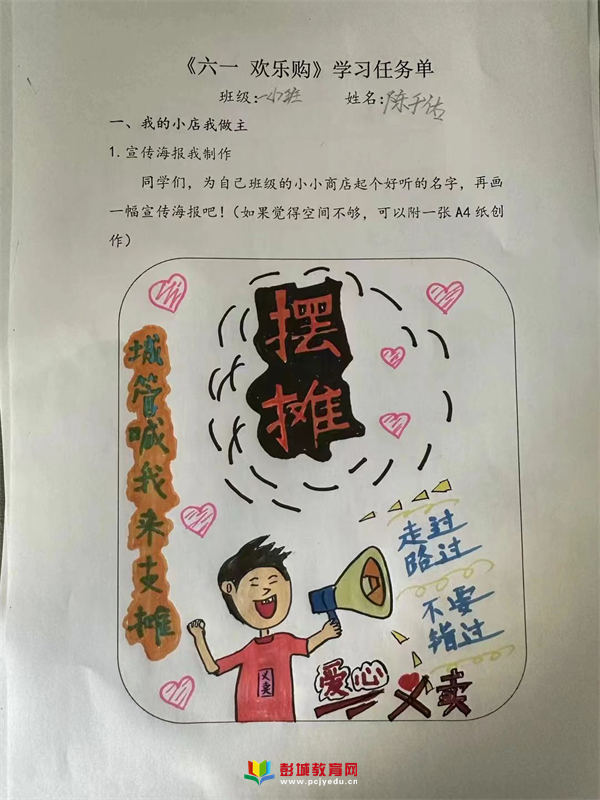 《六一 欢乐购》学习任务单
班级:一小班 姓名:陈于佑
一、我的小店我做主
1.宣传海报我制作
同学们，为自己班级的小小商店起个好听的名字，再画
一幅宣传海报吧！（如果觉得空间不够，可以附一张A4纸创
作）
摆
摊
城管喊我来支摊
走过
路过
不要
错过
义卖
爱心义卖
彭城教育网
www.pcjyedu.cn